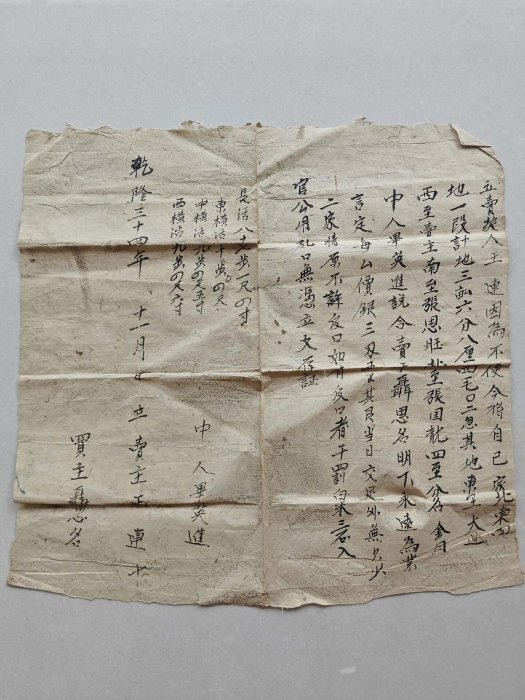 立賣契人王連因為不便今將自己家東南
地一段計地三畝六分八厘四毛〇二忽其地東至大道
西至賣主南至張思旺北至張国龍四至分名仝
中人畢英進説合賣于聶思名明下永遠為業
言定每畝價銀三刄五錢其艮當日交足外無欠少
二家情愿不許反口如有反口者干罰白米三石入
官公用孔口無憑立文存証
長活八十步一尺四寸
東橫活十步〇四尺
中橫活九步四尺五寸
西橫活九步四尺六寸
中人畢英進
乾隆三十四年十一月日立賣主王連十
買主聶思名